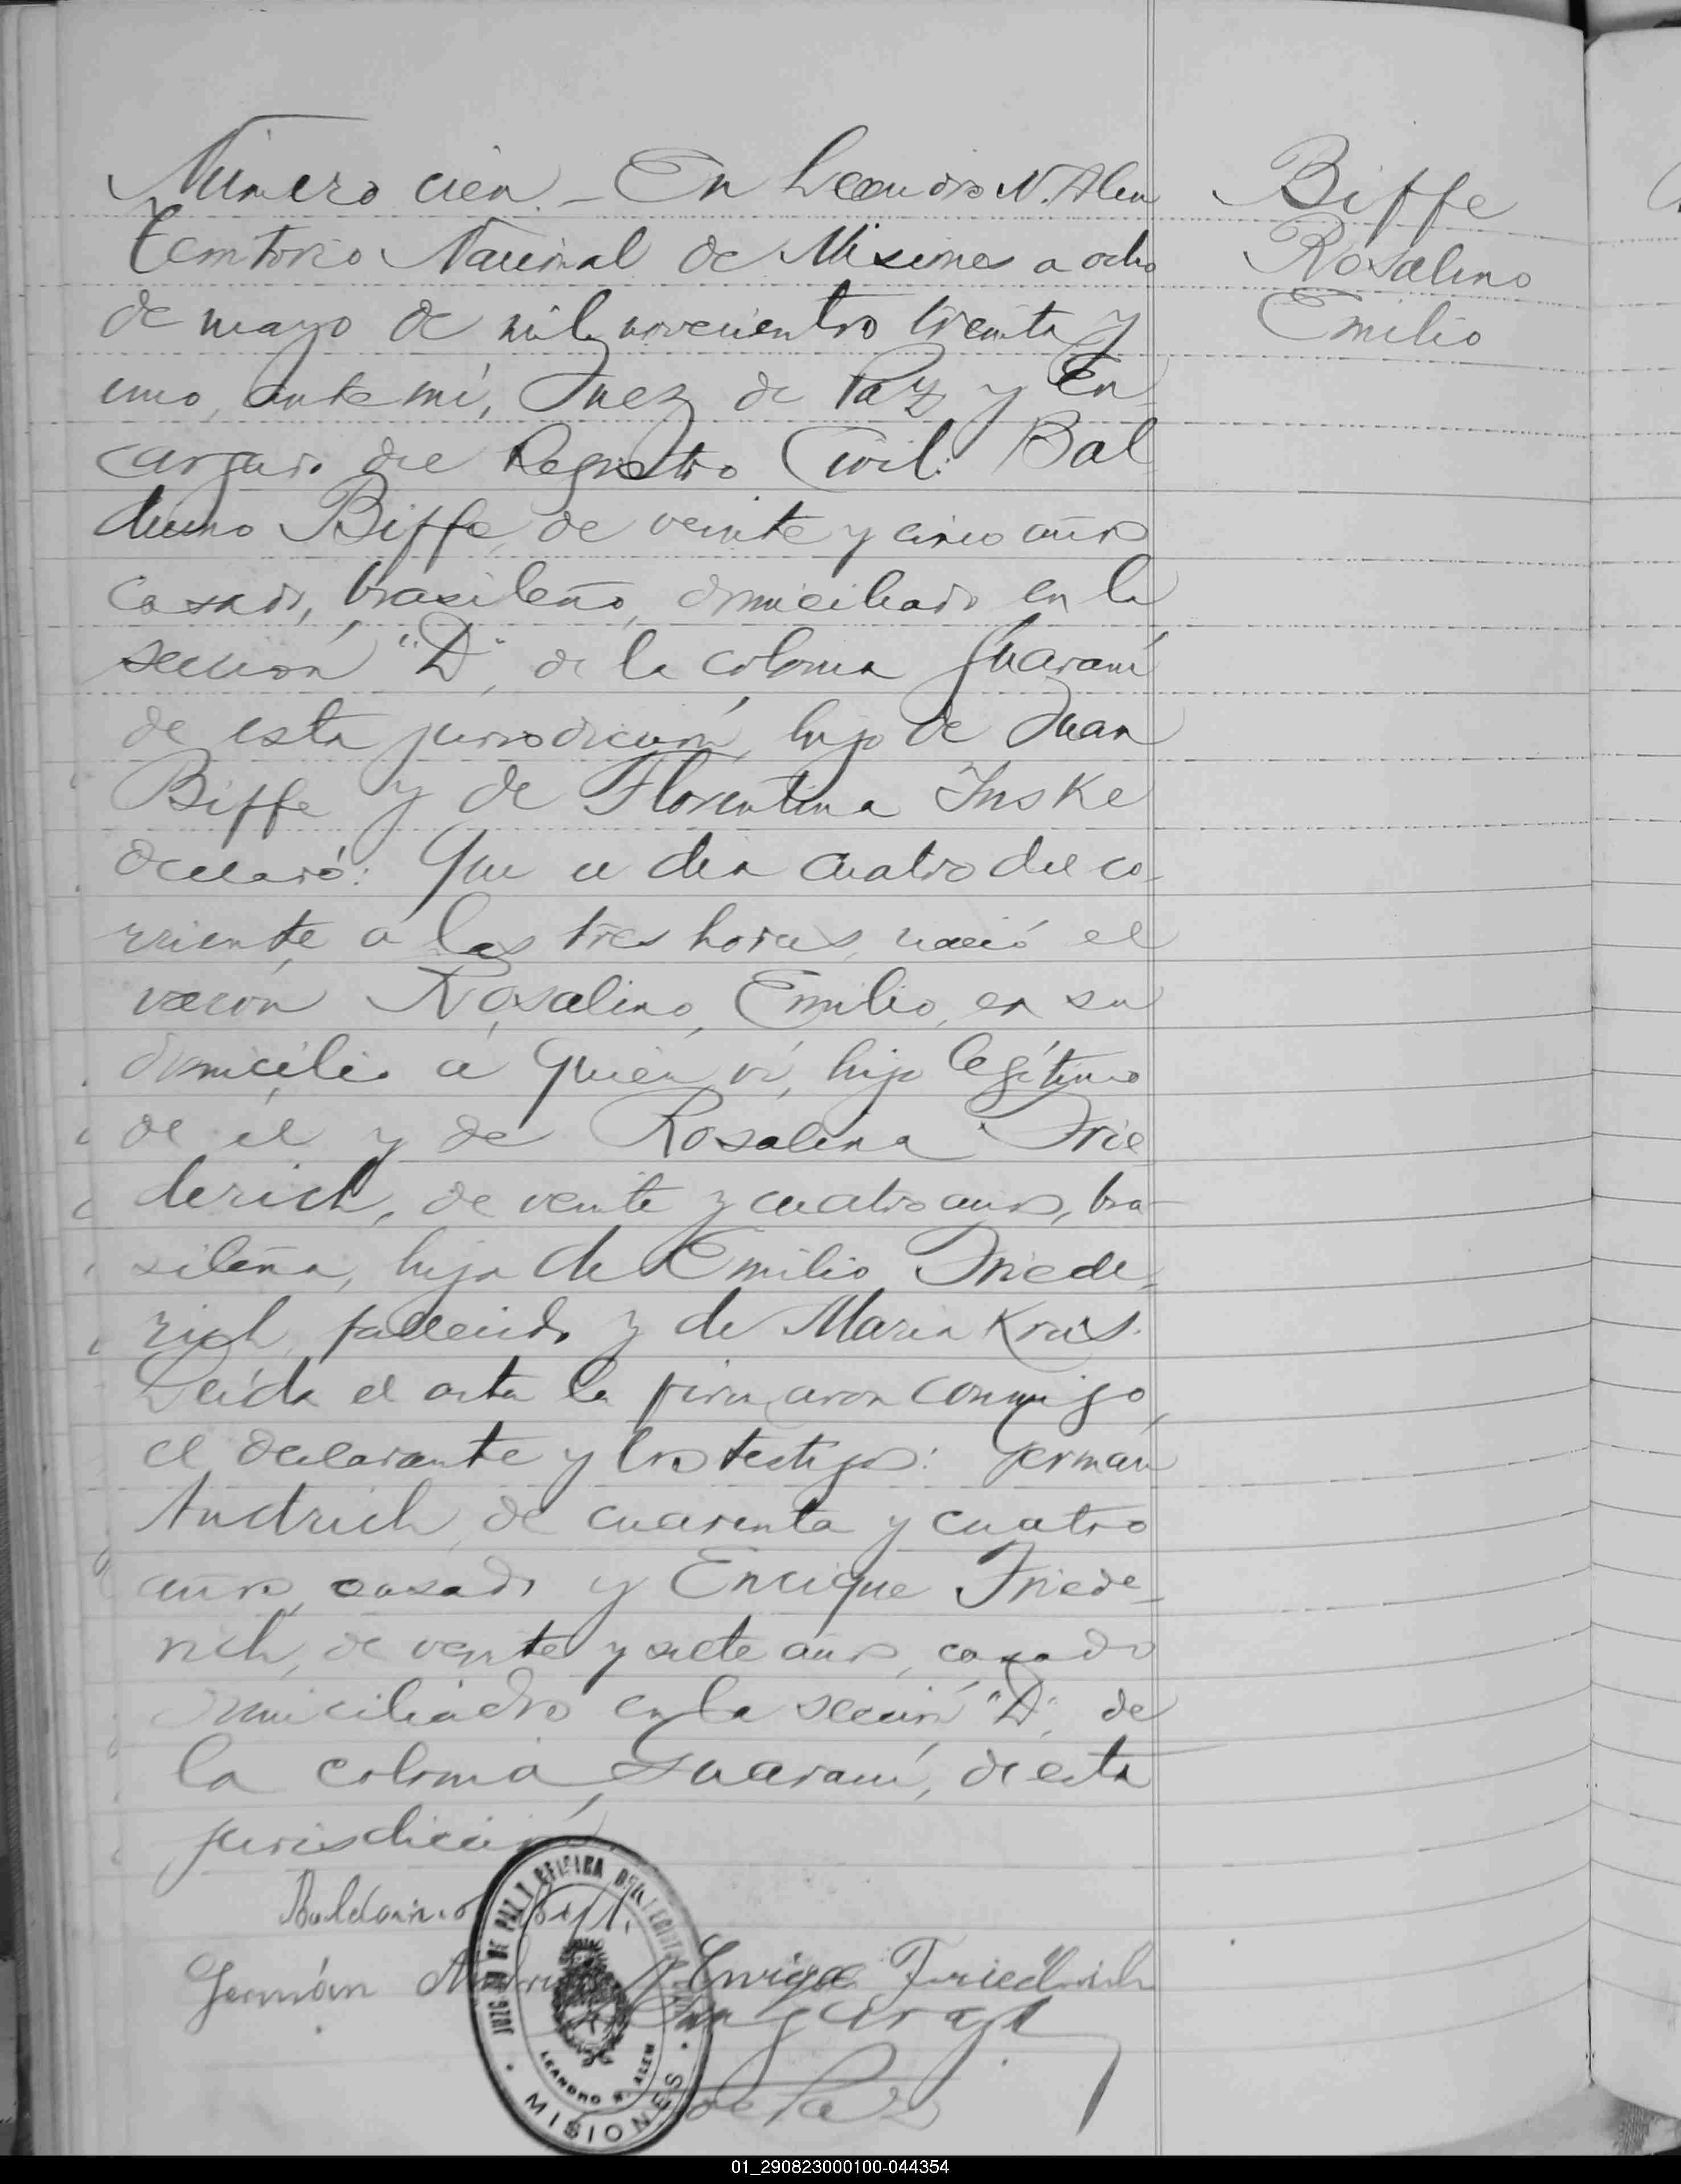 Número cien.- En Leandro N. Alem
Biffe
Rosalino
Emilio
territorio Nacional de Misiones a ocho
de mayo de mil novecientos treinta y
uno, ante mí, Juez de Paz y En
cargado del Registro Civil: Bal
duino Biffe, de veinte y cinco años
casado, brasileño, domiciliado en la
sección "D", de la colonia Guaraní
de esta jurisdicción, hijo de Juan
Biffe y de Florentina Inske
declaró: Que el día cuatro del co-
rriente, a las tres horas, nació el
varón Rosalino, Emilio, en su
domicilio a quien ví, hijo legítimo
de él y de Rosalina Frie
derich, de veinte y cuatro años, bra-
sileña, hija de Emilio Friede-
rich, fallecido y de María Krás.
Leída el acta la firmaron conmigo,
el declarante y los testigos: Germán
Andrich, de cuarenta y cuatro
años, casado y Enrique Friede-
rich, de veinte y siete años, casado
domiciliados en la sección "D", de
la colonia Guaraní, de esta
jurisdicción
Balduino Biffe
Germán Enrique Friedrich
de Paz
JUZGADO DE PAZ Y OFICINA DEL REGISTRO CIVIL
LEANDRO N. ALEM
MISIONES
01_290823000100-044354